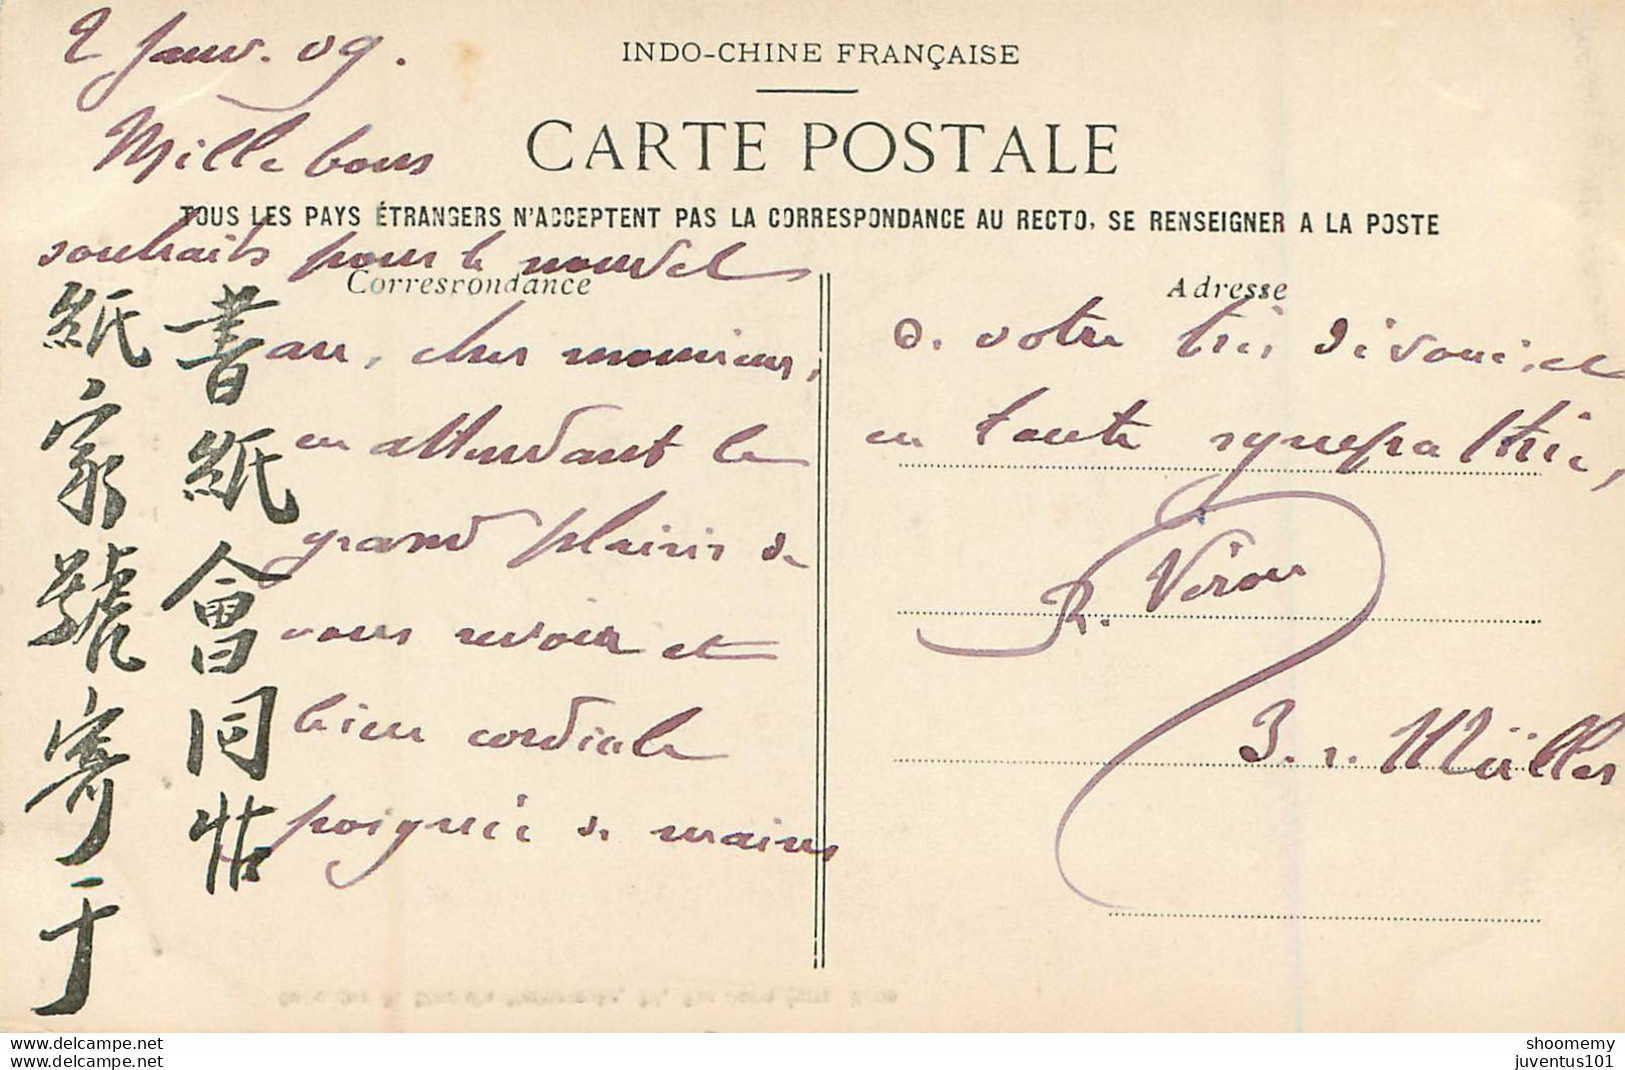 2 Janv. 09.
INDO-CHINE FRANÇAISE
CARTE POSTALE
TOUS LES PAYS ÉTRANGERS N'ACCEPTENT PAS LA CORRESPONDANCE AU RECTO, SE RENSEIGNER A LA POSTE
Correspondance
Mille bons
souhaits pour le nouvel
an, cher monsieur,
en attendant le
grand plaisir de
vous revoir et
bien cordiale
poignée de mains
書紙會同帖
紙家號寄于
Adresse
de votre très dévoué, et
en toute sympathie,
R. Véron
3. r. Müller
shoomemy
juventus101
shoomemy
juventus101